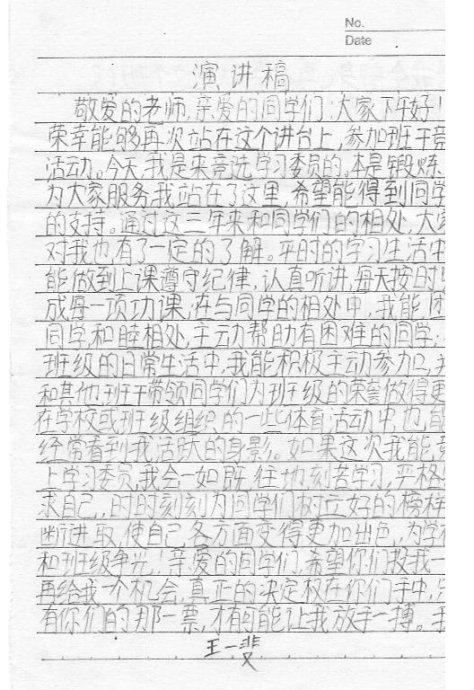 No.
Date
演讲稿
敬爱的老师,亲爱的同学们:大家下午好!
荣幸能够再次站在这个讲台上,参加班干竞
活动。今天,我是来竞选学习委员的。本是锻炼、
为大家服务,我站在了这里,希望能得到同学
的支持。通过这三年来和同学们的相处,大家
对我也有了一定的了解。平时的学习生活中
能做到上课遵守纪律,认真听讲,每天按时
成每一项功课,在与同学的相处中,我能团
同学和睦相处,主动帮助有困难的同学;
班级的日常生活中,我能积极主动参加,并
和其他班干带领同学们为班级的荣誉做得更
在学校或班级组织的一些体育活动中,也能
经常看到我活跃的身影。如果这次我能竞
上学习委员,我会一如既往地刻苦学习,严格
求自己,时时刻刻为同学们树立好的榜样
断进取,使自己各方面变得更加出色,为学校
和班级争光!亲爱的同学们,希望你们投我一
再给我一个机会,真正的决定权在你们手中,只
有你们的那一票,才有可能让我放手一搏。我
王一斐